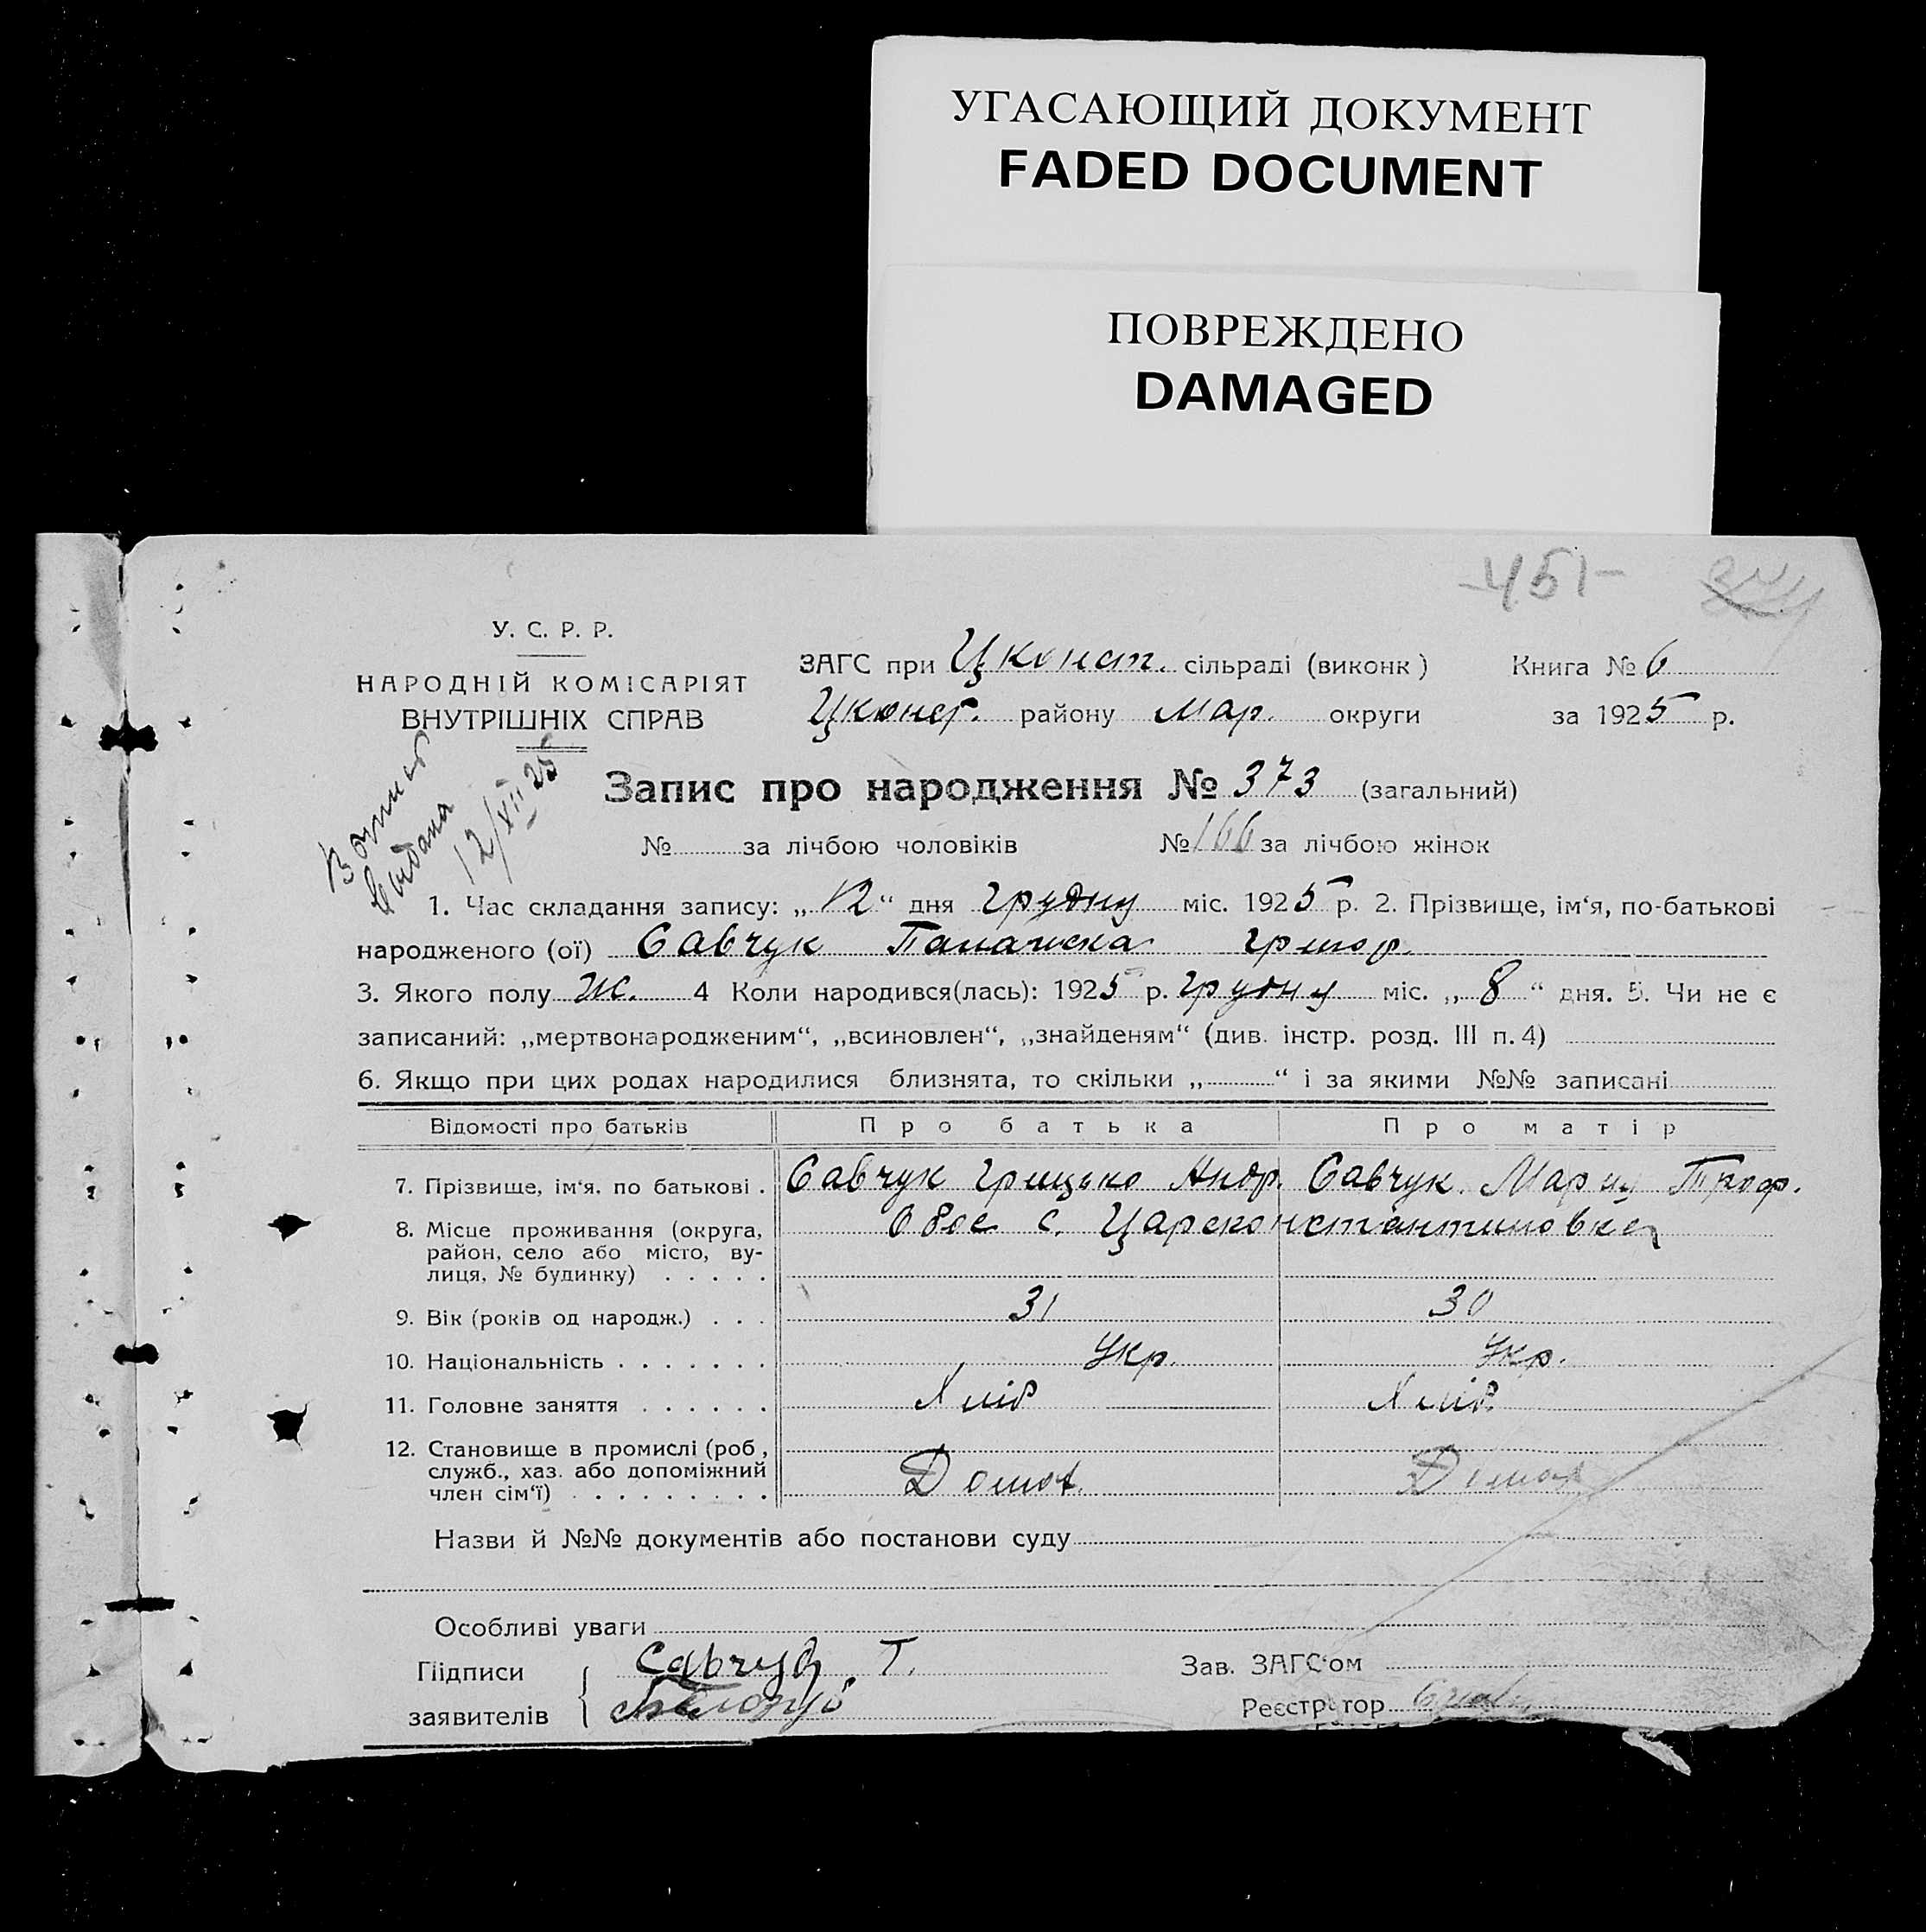 УГАСАЮЩИЙ ДОКУМЕНТ
FADED DOCUMENT
ПОВРЕЖДЕНО
DAMAGED
-451-
У. С. Р. Р.
НАРОДНІЙ КОМІСАРІЯТ
ВНУТРІШНІХ СПРАВ
ЗАГС при Цконст. сільраді (виконк) Книга № 6
Цконст. району Мар. округи за 1925 р.
выдана
12/XII 25
Запис про народження № 373 (загальний)
№ за лічбою чоловіків № 166 за лічбою жінок
1. Час складання запису: „12“ дня Грудня міс. 1925 р. 2. Прізвище, ім‘я, по-батькові
народженого (ої) Савчук Панашка Григор.
3. Якого полу Ж. 4 Коли народився(лась): 1925 р. Грудня міс. „8“ дня. 5. Чи не є
записаний: „мертвонародженим“, „всиновлен“, „знайденям“ (див. інстр. розд. III п. 4)
6. Якщо при цих родах народилися близнята, то скільки „ “ і за якими №№ записані
Відомості про батьків Про батька Про матір
7. Прізвище, ім‘я. по батькові . Савчук Грицько Андр. Савчук Мария Троф.
8. Місце проживання (округа, район, село або місто, ву-лиця, № будинку) . . . . . Обое с. Царсконстантиновка
9. Вік (років од народж.) . . . 31 30
10. Національність . . . . . . . Укр. Укр.
11. Головне заняття . . . . . . Хліб Хліб.
12. Становище в промислі (роб., служб., хаз. або допоміжний член сім‘ї) . . . . . . . . .
Назви й №№ документів або постанови суду
Особливі уваги
Підписи Савчук Г. Зав. ЗАГС‘ом
заявителів Реєстратор